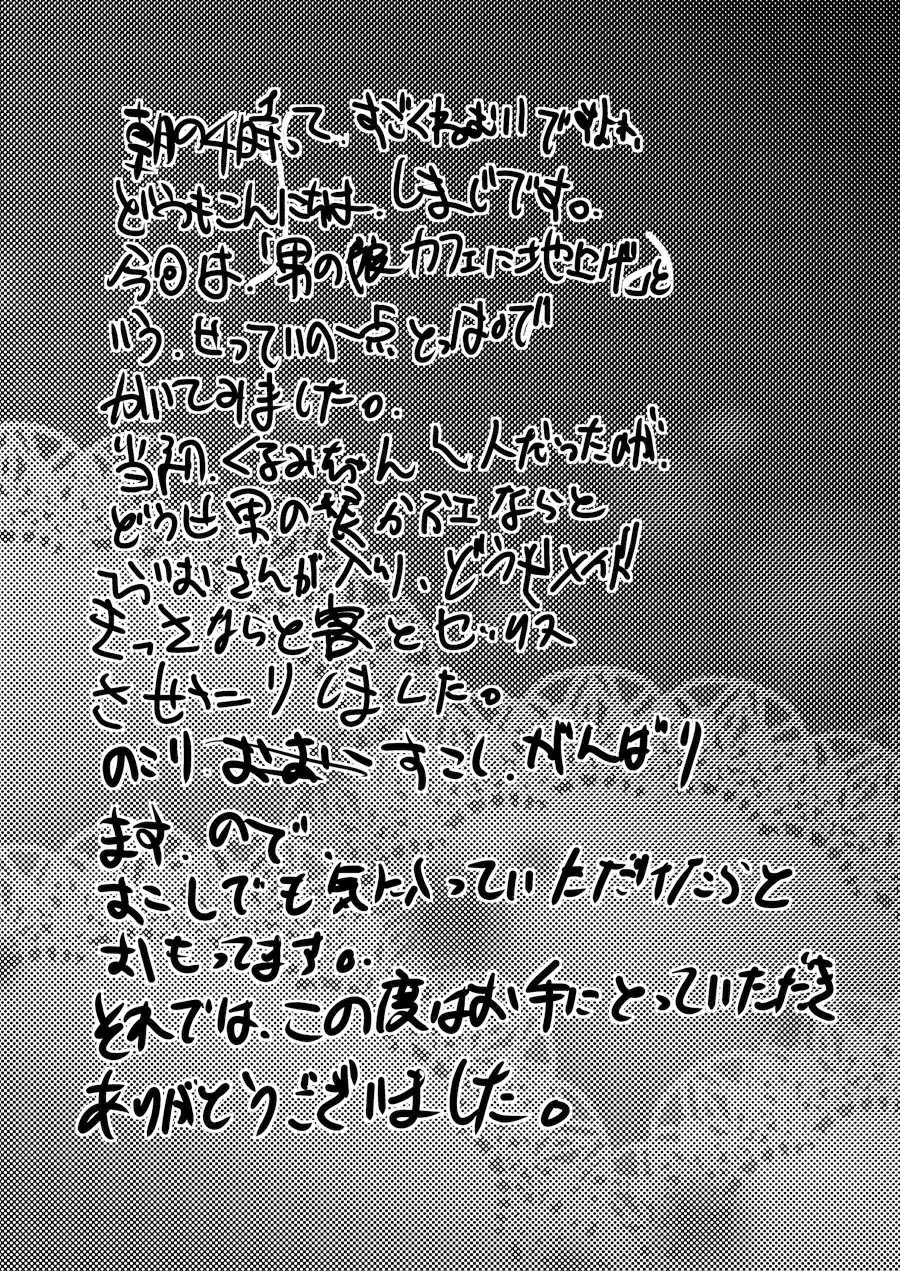 朝の4時って、すごくねむいですよね、
どうもこんにちは、しまじです。
今回は、「男の娘カフェに地上げ」と
いう、せっていの一点とっぱで
かいてみました。
当初、くるみちゃん1人だったのが、
どうせ男の娘かふェならと
らじおさんが入り、どうせメイド
きっさならと客とセックス
させたりしました。
のこりすこし、がんばり
ます、ので、
すこしでも気に入っていただけたらと
おもってます。
それでは、この度はお手にとっていただき
ありがとうございました。